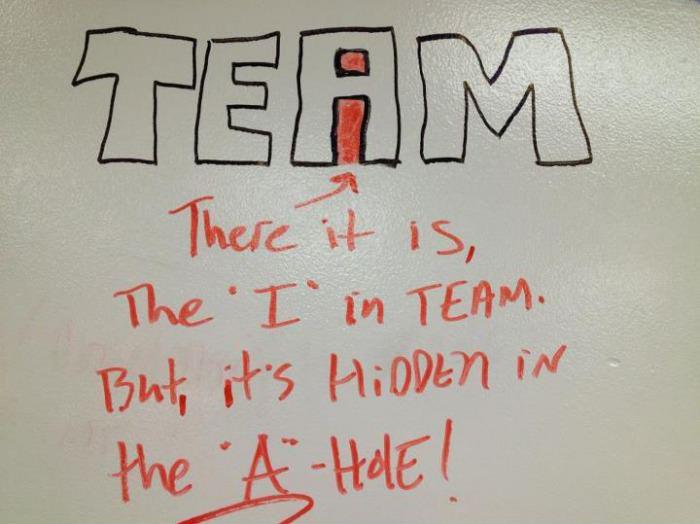 TEAM
There it is,
The "I" in TEAM.
But, it's HiDDEN iN
the "A"-HOLE!